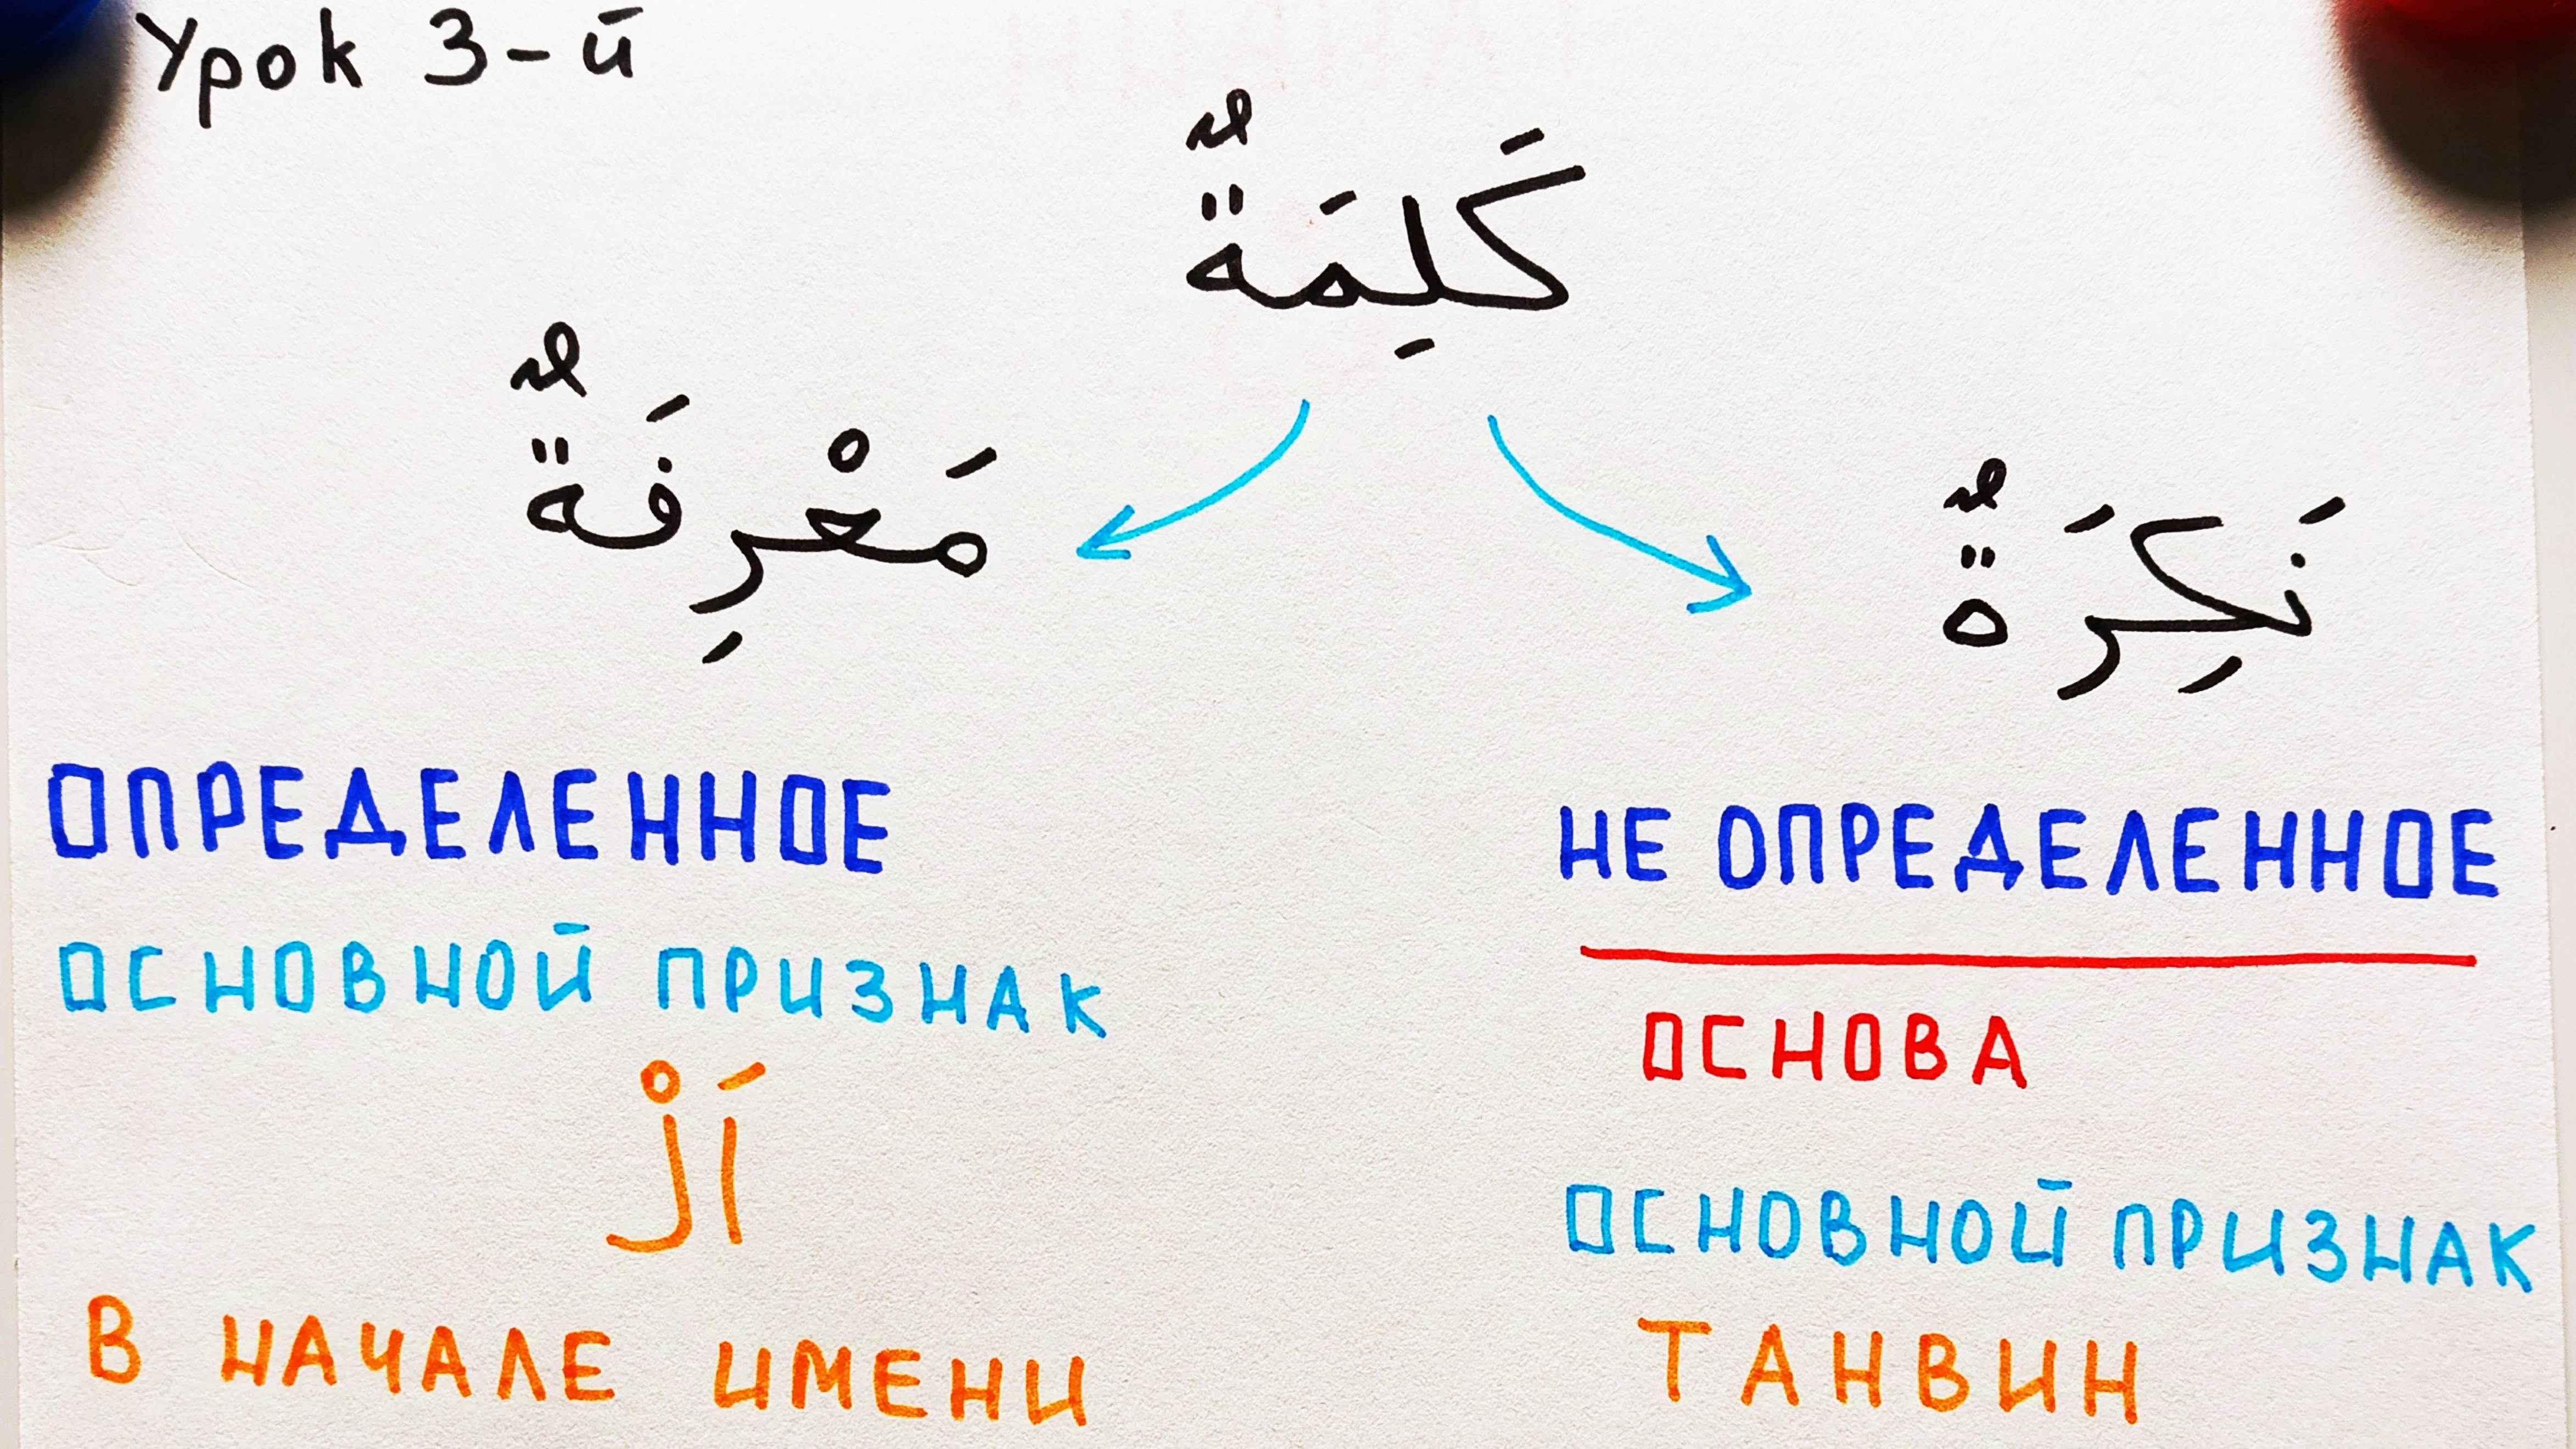 Урок 3-й
كَلِمَةٌ
مَعْرِفَةٌ
نَكِرَةٌ
ОПРЕДЕЛЕННОЕ
ОСНОВНОЙ ПРИЗНАК
اَلْ
В НАЧАЛЕ ИМЕНИ
НЕ ОПРЕДЕЛЕННОЕ
ОСНОВА
ОСНОВНОЙ ПРИЗНАК
ТАНВИН